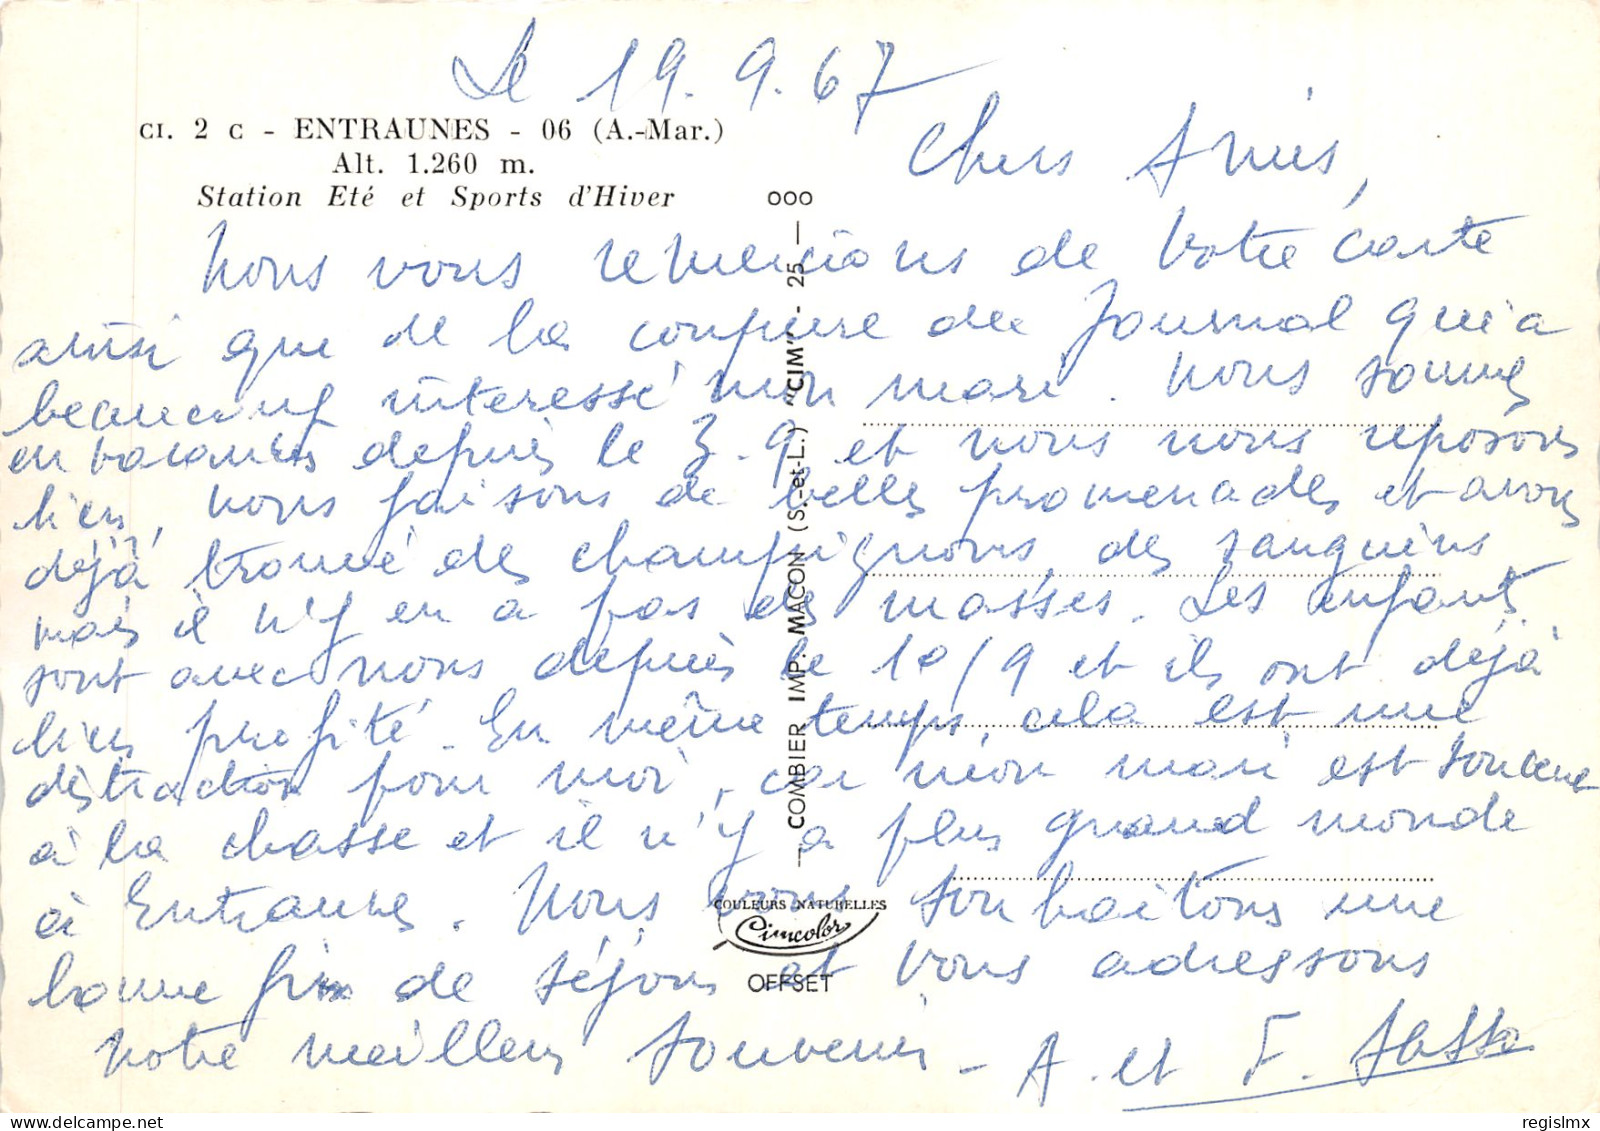 Le 19.9.67
CI. 2 C - ENTRAUNES - 06 (A.-Mar.)
Alt. 1.260 m.
Station Eté et Sports d'Hiver
Chers Amis,
Nous vous remercions de votre carte
ainsi que de la coupure du Journal qui a
beaucoup intéressé mon mari. Nous sommes
en vacances depuis le 3.9 et nous nous reposons
bien, nous faisons de belles promenades et avons
déjà trouvé des champignons, des sanguins
mais il n'y en a pas des masses. Les enfants
sont avec nous depuis le 10/9 et ils ont déjà
bien profité. En même temps, cela est une
distraction pour moi, car mon mari est souvent
à la chasse et il n'y a plus grand monde
à Entraunes. Nous vous souhaitons une
bonne fin de séjour et vous adressons
notre meilleur souvenir - A. et F.
OOO
COMBIER IMP. MACON (S.-et-L.) "CIM" - 25
COULEURS NATURELLES
Cimcolor
OFFSET
regislmx